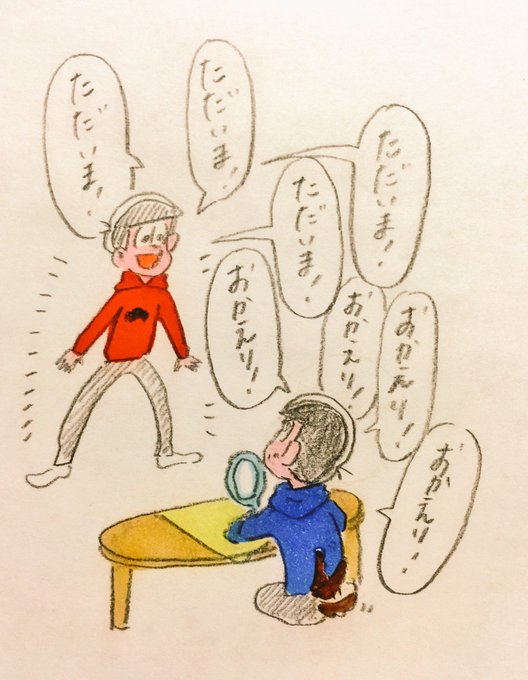 ただいま!
ただいま!
ただいま!
ただいま!
おかえり!
おかえり!
おかえり!
おかえり!